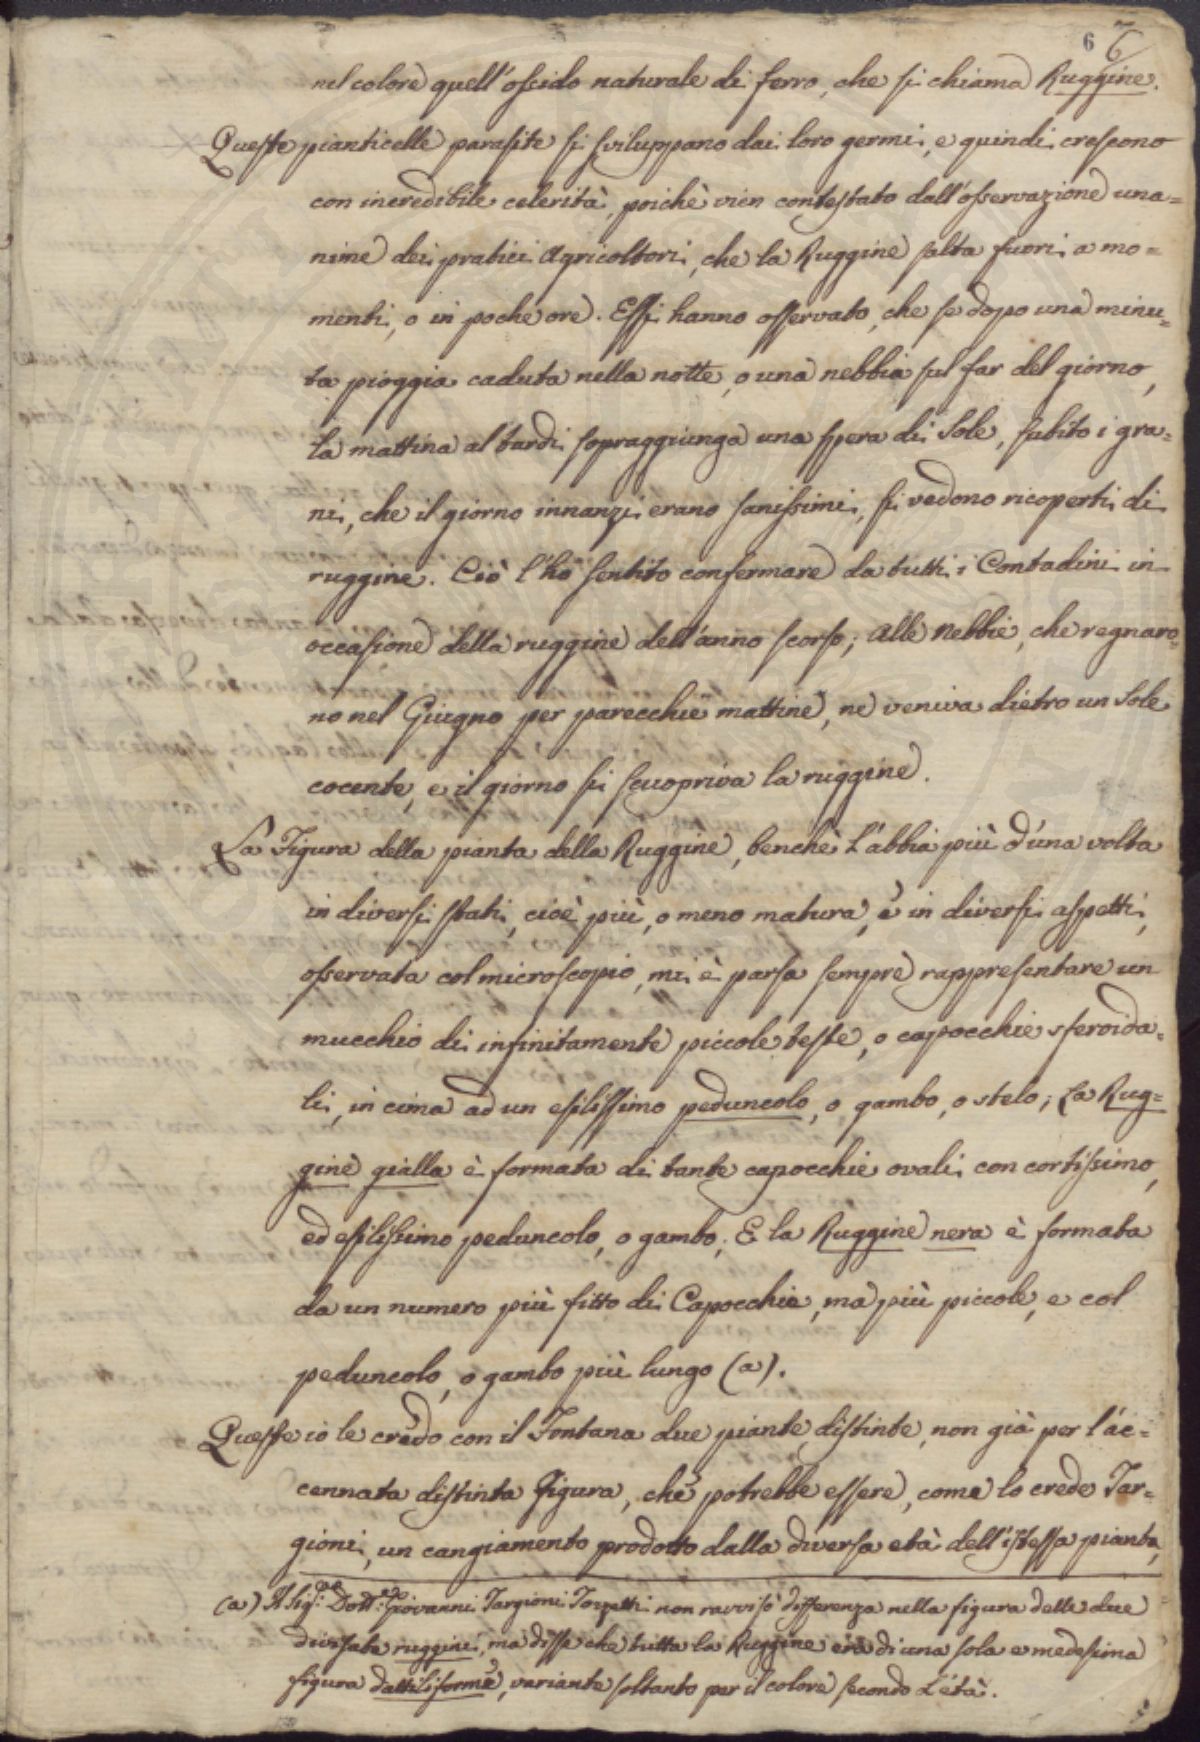 6 6
nel colore quell'ossido naturale di ferro, che si chiama Ruggine.
Queste pianticelle parasite si sviluppano dai loro germi, e quindi crescono
con incredibile celerità, poichè vien contestato dall'osservazione una=
nime dei pratici Agricoltori, che la Ruggine salta fuori a mo=
menti, o in poche ore. Essi hanno osservato, che se dopo una minu=
ta pioggia caduta nella notte, o una nebbia sul far del giorno,
la mattina al tardi sopraggiunga una spera di Sole, subito i gra=
ni, che il giorno innanzi erano sanissimi, si vedono ricoperti di
ruggine. Ciò l'hò sentito confermare da tutti i Contadini in
occasione della ruggine dell'anno scorso; Alle Nebbie, che regnaro=
no nel Giugno per parecchie mattine, ne veniva dietro un Sole
cocente, e il giorno si scuopriva la ruggine.
La Figura della pianta della Ruggine, benchè l'abbia più d'una volta
in diversi stati, cioè più, o meno matura, e in diversi aspetti,
osservata col microscopio, mi è parsa sempre rappresentare un
mucchio di infinitamente piccole teste, o capocchie sferoida=
li, in cima ad un esilissimo peduncolo, o gambo, o stelo; La Rug=
gine gialla è formata di tante capocchie ovali con cortissimo,
ed esilissimo peduncolo, o gambo; E la Ruggine nera è formata
da un numero più fitto di Capocchie, ma più piccole, e col
peduncolo, o gambo più lungo (a).
Queste io le credo con il Fontana due piante distinte, non già per l'ac=
cennata distinta figura, che potrebbe essere, come lo crede Tar=
gioni, un cangiamento prodotto dalla diversa età dell'istessa pianta,
(a) Il Sig:re Dott:e Giovanni Targioni Tozzetti non ravvisò differenza nella figura delle due
divisate ruggini, ma disse che tutta la Ruggine era di una sola e medesima
figura dattiliforme, variante soltanto per il colore secondo l'età.